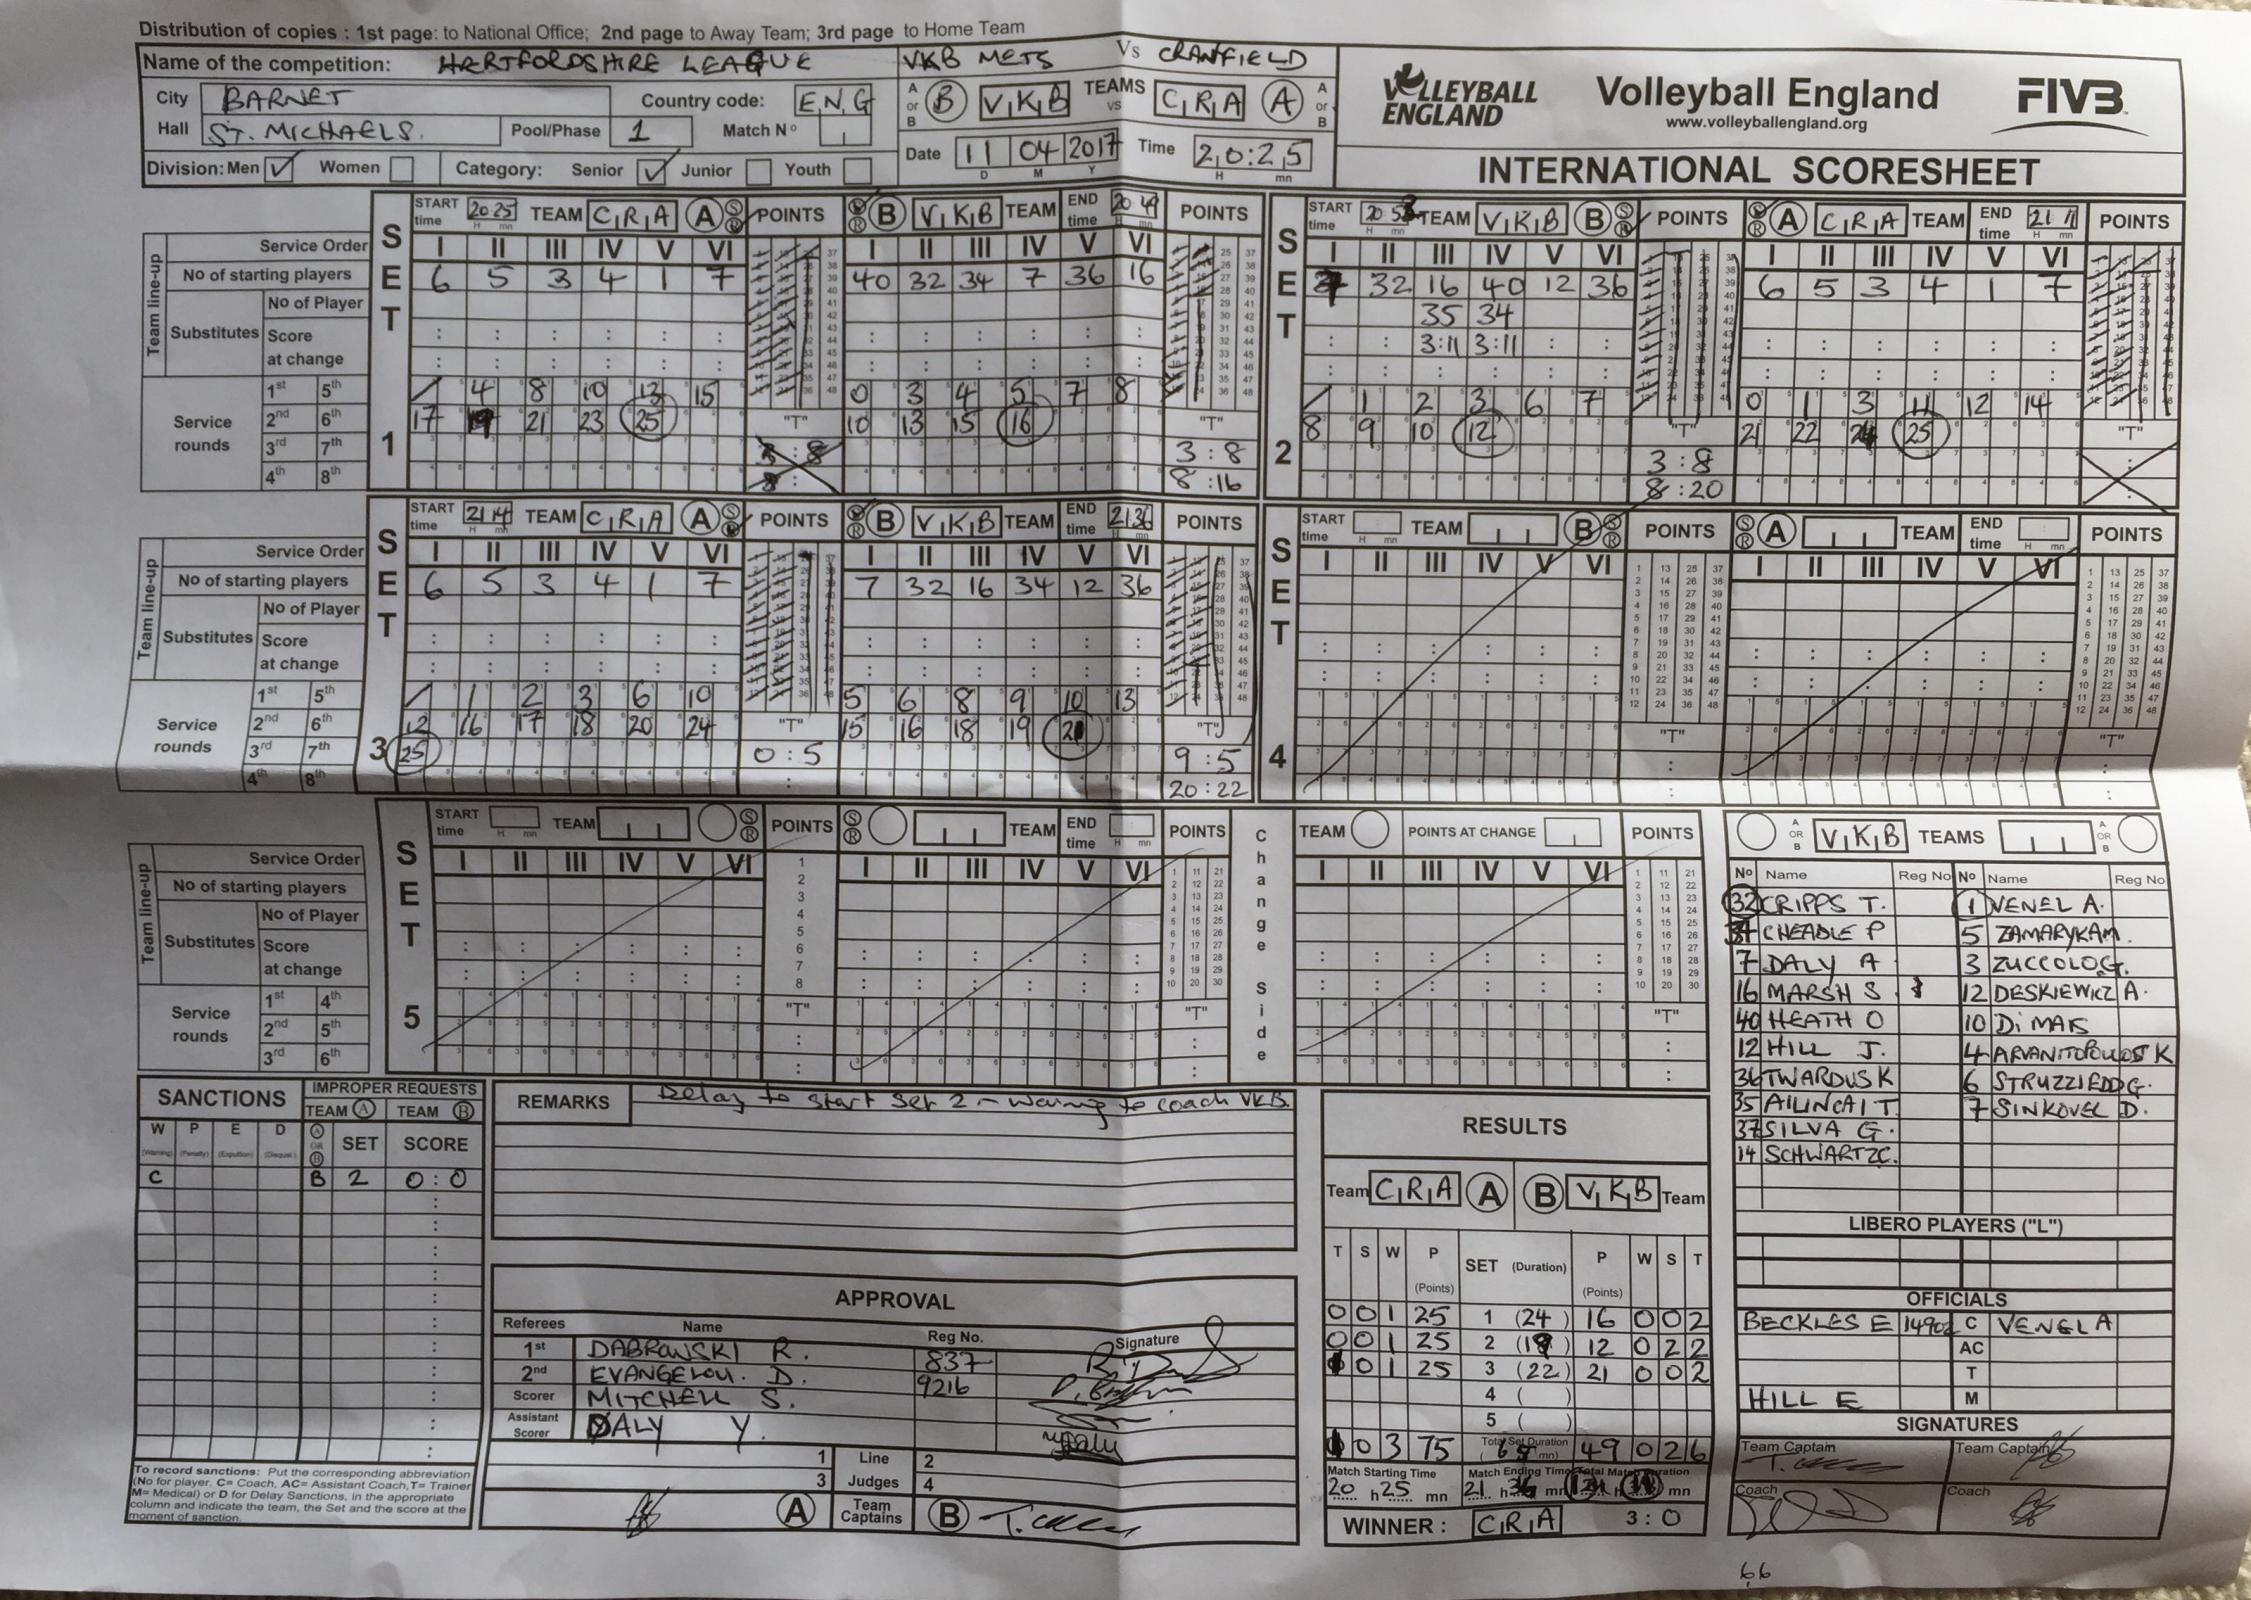 Distribution of copies : 1st page: to National Office; 2nd page to Away Team; 3rd page to Home Team
Name of the competition: HERTFORDSHIRE LEAGUE VKB METS Vs CRANFIELD
City BARNET Country code: ENG
Hall ST. MICHAELS. Pool/Phase 1 Match Nº
A or B B VKB TEAMS vs CRA A A or B
Date 11 04 2017 Time 20:25
D M Y H mn
Division: Men ✓ Women Category: Senior ✓ Junior Youth
VOLLEYBALL ENGLAND
Volleyball England
www.volleyballengland.org
FIVB
INTERNATIONAL SCORESHEET
SET 1
START time 20 25 TEAM CRA A S R POINTS S R B VKB TEAM END time 20 49 POINTS
Service Order I II III IV V VI I II III IV V VI
Team line-up
No of starting players 6 5 3 4 1 7 40 32 34 7 36 16
Substitutes No of Player
Score at change
Service rounds
1st 5th 4 8 10 13 15 0 3 4 5 7 8
2nd 6th 17 21 23 25 10 13 15 16
3rd 7th
4th 8th
"T" 3:8
"T" 3:8
8:16
SET 2
START time TEAM VKB B S R POINTS S R A CRA TEAM END time 21 11 POINTS
I II III IV V VI I II III IV V VI
32 16 40 12 36 6 5 3 4 1 7
35 34
3:11 3:11
1 2 3 6 7 0 1 3 11 12 14
8 9 10 12 21 22 25
"T" 3:8
8:20
"T"
SET 3
START time 21 14 TEAM CRA A S R POINTS S R B VKB TEAM END time 21 36 POINTS
Service Order I II III IV V VI I II III IV V VI
Team line-up
No of starting players 6 5 3 4 1 7 7 32 16 34 12 36
Substitutes No of Player
Score at change
Service rounds
1st 5th 1 2 3 6 10 5 6 8 9 10 13
2nd 6th 12 16 17 18 20 24 15 16 18 19 21
3rd 7th 25
4th 8th
"T" 0:5
"T" 9:5
20:22
SET 4
START time TEAM B S R POINTS S R A TEAM END time POINTS
I II III IV V VI I II III IV V VI
"T" "T"
SET 5
START time TEAM S R POINTS S R TEAM END time POINTS
Change Side
TEAM POINTS AT CHANGE POINTS
Service Order I II III IV V VI I II III IV V VI I II III IV V VI
Team line-up
No of starting players
Substitutes No of Player
Score at change
Service rounds
1st 4th
2nd 5th
3rd 6th
"T" "T" "T"
A OR B VKB TEAMS A OR B
Nº Name Reg No Nº Name Reg No
32 CRIPPS T. 1 VENEL A.
34 CHEADLE P 5 ZAMARYKAM.
7 DALY A 3 ZUCCOLO G.
16 MARSH S 12 DESKIEWICZ A.
40 HEATH O 10 Di MAIS
12 HILL J. 4 ARVANITOPOULOS K
36 TWARDUS K 6 STRUZZIEDD G.
35 AILINCAI T 7 SINKOVEL D.
37 SILVA G.
14 SCHWARTZ C.
LIBERO PLAYERS ("L")
OFFICIALS
BECKLES E C VENEL A
AC
T
HILL E M
SIGNATURES
Team Captain Team Captain
Coach Coach
SANCTIONS IMPROPER REQUESTS
TEAM A TEAM B
W P E D A OR B SET SCORE
(Warning) (Penalty) (Expultion) (Disqual.)
C B 2 0:0
To record sanctions: Put the corresponding abbreviation
(No for player, C= Coach, AC= Assistant Coach, T= Trainer
M= Medical) or D for Delay Sanctions, in the appropriate
column and indicate the team, the Set and the score at the
moment of sanction.
REMARKS Delay to start set 2 - warning to coach VKB.
APPROVAL
Referees Name Reg No. Signature
1st DABROWSKI R. 837
2nd EVANGELOU. D. 9216
Scorer MITCHELL S.
Assistant Scorer DALY Y.
1 Line 2
3 Judges 4
A Team Captains B
RESULTS
Team CRA A B VKB Team
T S W P (Points) SET (Duration) P (Points) W S T
0 0 1 25 1 (24) 16 0 0 2
0 0 1 25 2 12 0 2 2
0 1 25 3 (22) 21 0 0 2
4 ( )
5 ( )
0 3 75 Total Set Duration 49 0 2 6
Match Starting Time Match Ending Time Total Match Duration
20 h 25 mn 21 h 36 mn
WINNER : CRA 3:0
66